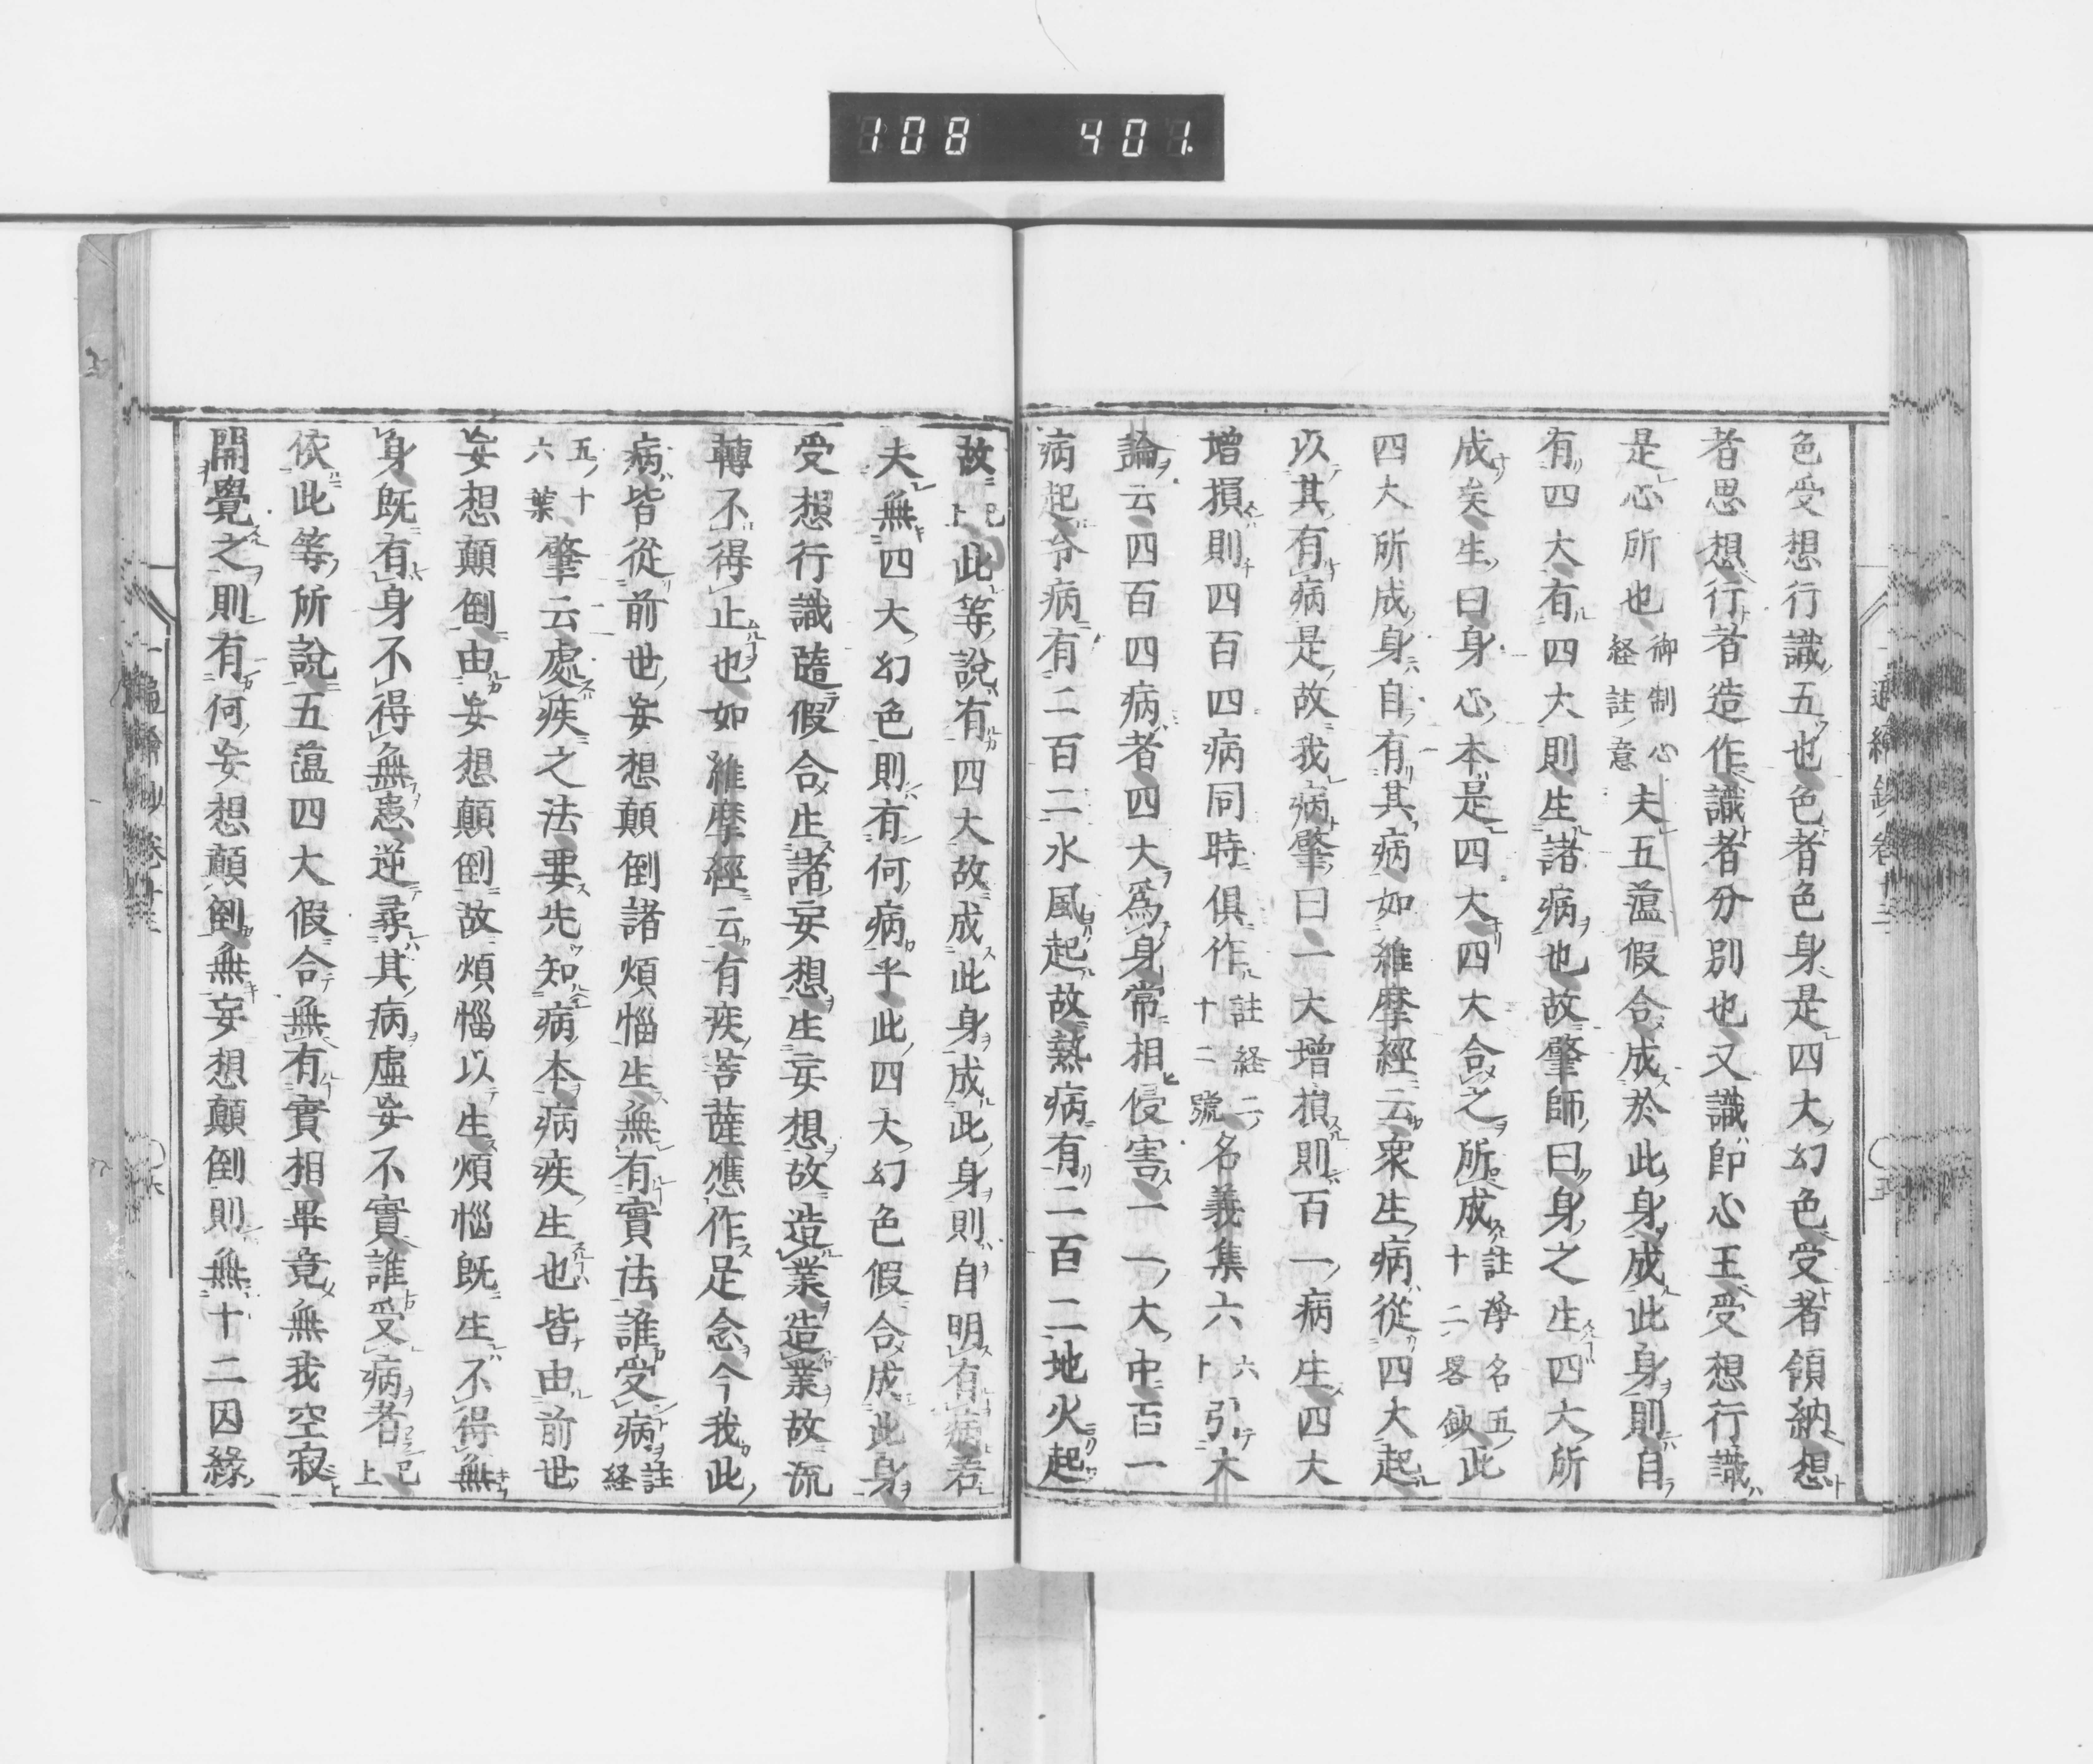 108 401.
色受想行識五也色者色身是四大幻色受者領納想
者思想行者造作識者分別也又識即心王受想行識
是心所也御制心経註意夫五薀假合成於此身成此身則自
有四大有四大則生諸病也故肇師曰身之生四大所
成矣生曰身心本是四大四大合之所成註淨名五十二畧鈔此
四大所成身自有其病如維摩經云衆生病從四大起
以其有病是故我病肇曰一大增損則百一病生四大
增損則四百四病同時俱作註経二十二號名義集六六卜引大
論云四百四病者四大爲身常相侵害一一大中百一
病起令病有二百二水風起故熱病有二百二地火起
故已上此等說有四大故成此身成此身則自明有病若
夫無四大幻色則有何病乎此四大幻色假合成此身
受想行識隨假合生諸妄想生妄想故造業造業故流
轉不得止也如維摩經云有疾菩薩應作是念今我此
病皆從前世妄想顛倒諸煩惱生無有實法誰受病註経
五十六葉肇云處疾之法要先知病本病疾生也皆由前世
妄想顛倒由妄想顛倒故煩惱以生煩惱既生不得無
身既有身不得無患逆尋其病虛妄不實誰受病者已上
依此等所說五薀四大假合無有實相畢竟無我空寂
開覺之則有何妄想顛倒無妄想顛倒則無十二因緣